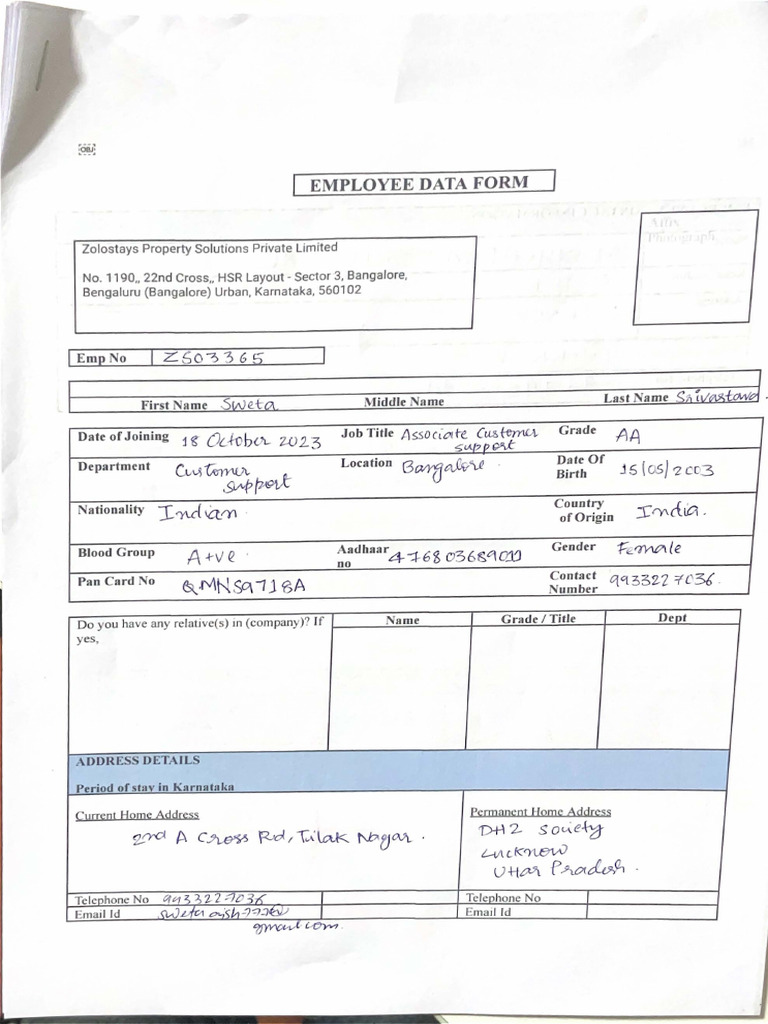 OBJ
EMPLOYEE DATA FORM
Affix
Photograph
Zolostays Property Solutions Private Limited
No. 1190,, 22nd Cross,, HSR Layout - Sector 3, Bangalore,
Bengaluru (Bangalore) Urban, Karnataka, 560102
Emp No ZS03365
First Name Sweta Middle Name Last Name Srivastava
Date of Joining 18 October 2023 Job Title Associate Customer support Grade AA
Department Customer support Location Bangalore. Date Of Birth 15/05/2003
Nationality Indian. Country of Origin India.
Blood Group A+ve. Aadhaar no 476803689011 Gender Female
Pan Card No QMNS9718A Contact Number 9933227036.
Do you have any relative(s) in (company)? If yes, Name Grade / Title Dept
ADDRESS DETAILS
Period of stay in Karnataka
Current Home Address
2nd A Cross Rd, Tilak Nagar.
Permanent Home Address
DH2 Society
Lucknow
Uttar Pradesh.
Telephone No 9933227036 Telephone No
Email Id Email Id
gmail.com